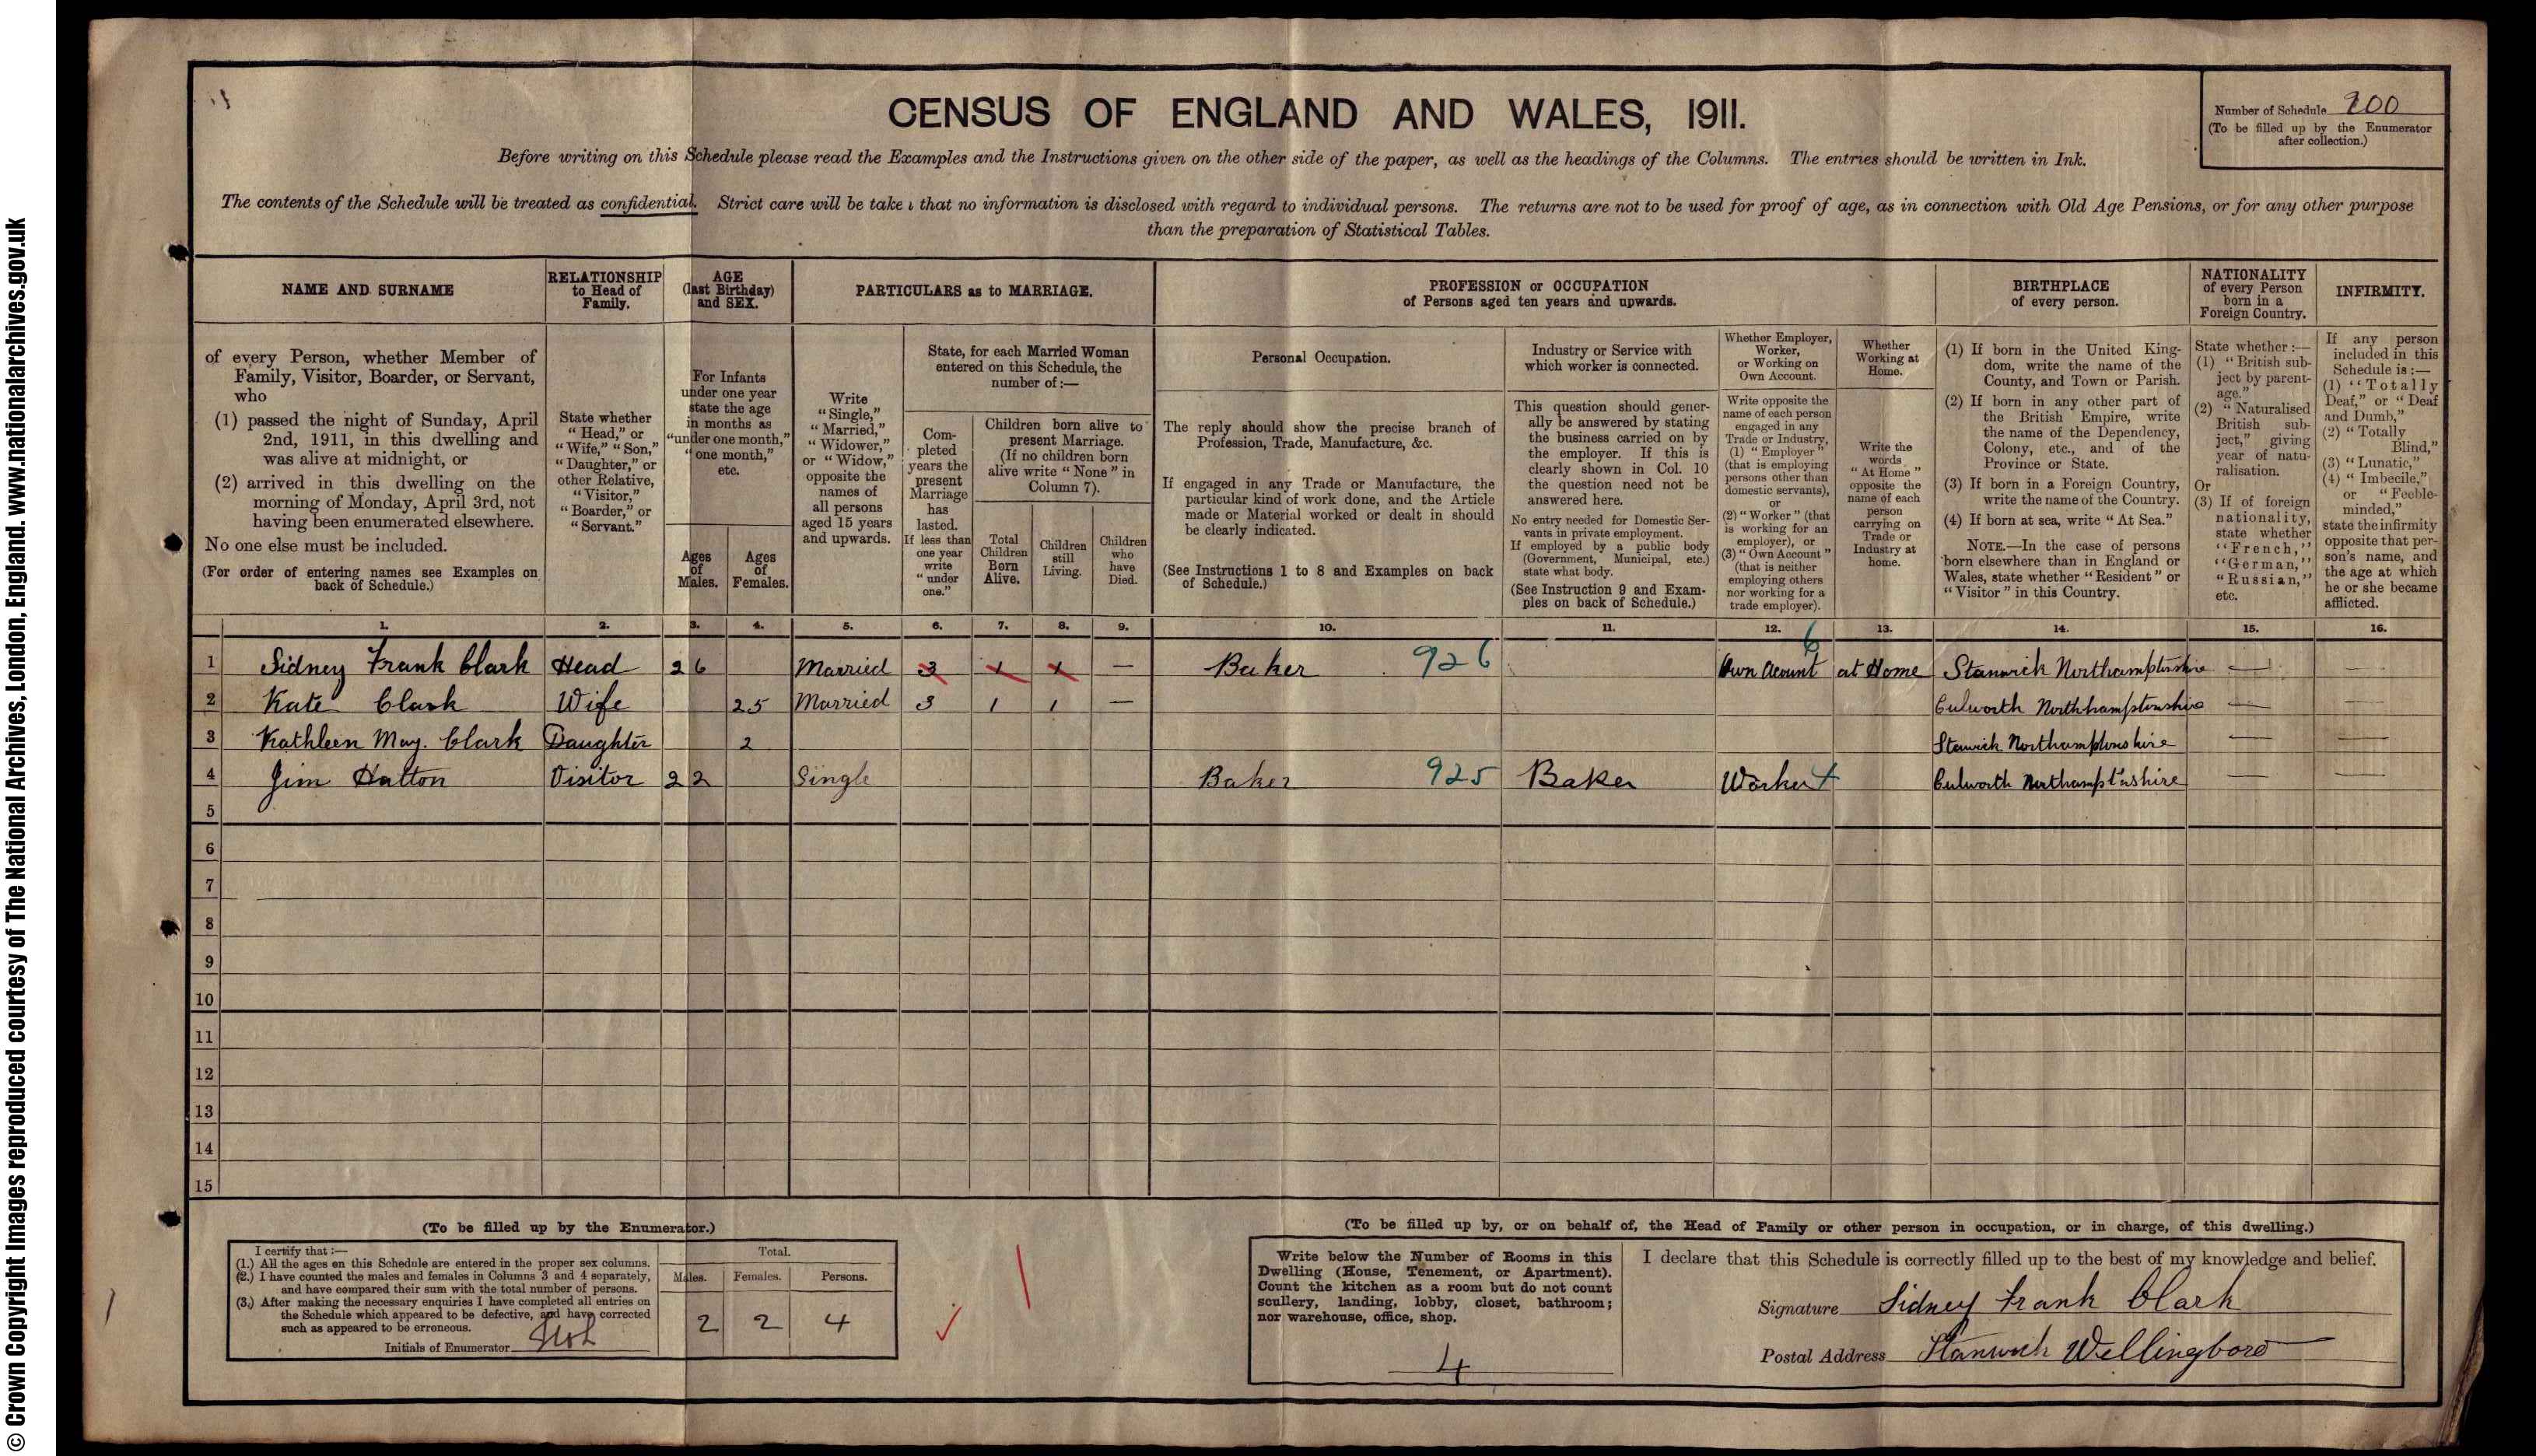 © Crown Copyright Images reproduced courtesy of The National Archives, London, England. www.nationalarchives.gov.uk
CENSUS OF ENGLAND AND WALES, 1911.
Number of Schedule 200
(To be filled up by the Enumerator
after collection.)
Before writing on this Schedule please read the Examples and the Instructions given on the other side of the paper, as well as the headings of the Columns. The entries should be written in Ink.
The contents of the Schedule will be treated as confidential. Strict care will be take that no information is disclosed with regard to individual persons. The returns are not to be used for proof of age, as in connection with Old Age Pensions, or for any other purpose
than the preparation of Statistical Tables.
NAME AND SURNAME
RELATIONSHIP
to Head of
Family.
AGE
(last Birthday)
and SEX.
PARTICULARS as to MARRIAGE.
PROFESSION or OCCUPATION
of Persons aged ten years and upwards.
BIRTHPLACE
of every person.
NATIONALITY
of every Person
born in a
Foreign Country.
INFIRMITY.
of every Person, whether Member of
Family, Visitor, Boarder, or Servant,
who
(1) passed the night of Sunday, April
2nd, 1911, in this dwelling and
was alive at midnight, or
(2) arrived in this dwelling on the
morning of Monday, April 3rd, not
having been enumerated elsewhere.
No one else must be included.
(For order of entering names see Examples on
back of Schedule.)
State whether
"Head," or
"Wife," "Son,"
"Daughter," or
other Relative,
"Visitor,"
"Boarder," or
"Servant."
For Infants
under one year
state the age
in months as
"under one month,"
"one month,"
etc.
Ages
of
Males.
Ages
of
Females.
Write
"Single,"
"Married,"
"Widower,"
or "Widow,"
opposite the
names of
all persons
aged 15 years
and upwards.
State, for each Married Woman
entered on this Schedule, the
number of:—
Com-
pleted
years the
present
Marriage
has
lasted.
If less than
one year
write
"under
one."
Children born alive to
present Marriage.
(If no children born
alive write "None" in
Column 7).
Total
Children
Born
Alive.
Children
still
Living.
Children
who
have
Died.
Personal Occupation.
The reply should show the precise branch of
Profession, Trade, Manufacture, &c.
If engaged in any Trade or Manufacture, the
particular kind of work done, and the Article
made or Material worked or dealt in should
be clearly indicated.
(See Instructions 1 to 8 and Examples on back
of Schedule.)
Industry or Service with
which worker is connected.
This question should gener-
ally be answered by stating
the business carried on by
the employer. If this is
clearly shown in Col. 10
the question need not be
answered here.
No entry needed for Domestic Ser-
vants in private employment.
If employed by a public body
(Government, Municipal, etc.)
state what body.
(See Instruction 9 and Exam-
ples on back of Schedule.)
Whether Employer,
Worker,
or Working on
Own Account.
Write opposite the
name of each person
engaged in any
Trade or Industry,
(1) "Employer"
(that is employing
persons other than
domestic servants),
or
(2) "Worker" (that
is working for an
employer), or
(3) "Own Account"
(that is neither
employing others
nor working for a
trade employer).
Whether
Working at
Home.
Write the
words
"At Home"
opposite the
name of each
person
carrying on
Trade or
Industry at
home.
(1) If born in the United King-
dom, write the name of the
County, and Town or Parish.
(2) If born in any other part of
the British Empire, write
the name of the Dependency,
Colony, etc., and of the
Province or State.
(3) If born in a Foreign Country,
write the name of the Country.
(4) If born at sea, write "At Sea."
NOTE.—In the case of persons
born elsewhere than in England or
Wales, state whether "Resident" or
"Visitor" in this Country.
State whether:—
(1) "British sub-
ject by parent-
age."
(2) "Naturalised
British sub-
ject," giving
year of natu-
ralisation.
Or
(3) If of foreign
nationality,
state whether
"French,"
"German,"
"Russian,"
etc.
If any person
included in this
Schedule is:—
(1) "Totally
Deaf," or "Deaf
and Dumb,"
(2) "Totally
Blind,"
(3) "Lunatic,"
(4) "Imbecile,"
or "Feeble-
minded,"
state the infirmity
opposite that per-
son's name, and
the age at which
he or she became
afflicted.
1. 2. 3. 4. 5. 6. 7. 8. 9. 10. 11. 12. 13. 14. 15. 16.
1 Sidney Frank Clark Head 26 Married 3 1 1 — Baker 926 Own Acount 6 at Home Stanwick Northamptonshire — —
2 Kate Clark Wife 25 Married 3 1 1 — Culworth Northhamptonshire — —
3 Kathleen May. Clark Daughter 2 Stanwick Northamptonshire — —
4 Jim Hatton Visitor 22 Single Baker 925 Baker Worker Culworth Northamptonshire — —
5
6
7
8
9
10
11
12
13
14
15
(To be filled up by the Enumerator.)
I certify that:—
(1.) All the ages on this Schedule are entered in the proper sex columns.
(2.) I have counted the males and females in Columns 3 and 4 separately,
and have compared their sum with the total number of persons.
(3.) After making the necessary enquiries I have completed all entries on
the Schedule which appeared to be defective, and have corrected
such as appeared to be erroneous.
Initials of Enumerator
Total.
Males. Females. Persons.
2 2 4
(To be filled up by, or on behalf of, the Head of Family or other person in occupation, or in charge, of this dwelling.)
Write below the Number of Rooms in this
Dwelling (House, Tenement, or Apartment).
Count the kitchen as a room but do not count
scullery, landing, lobby, closet, bathroom;
nor warehouse, office, shop.
4
I declare that this Schedule is correctly filled up to the best of my knowledge and belief.
Signature Sidney Frank Clark
Postal Address Stanwick Wellingboro